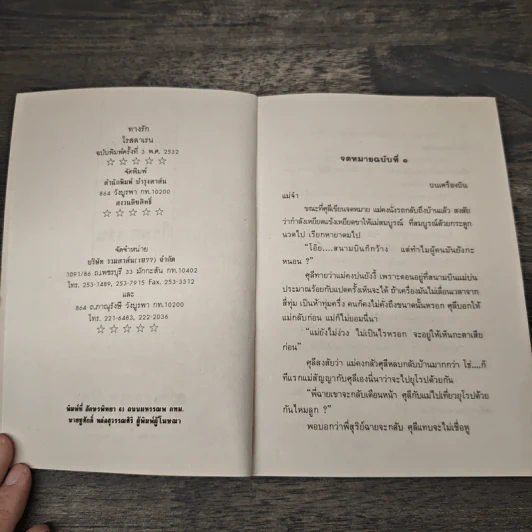 ทางรัก
โรสลาเรน
ฉบับพิมพ์ครั้งที่ 3 พ.ศ. 2532
☆ ☆ ☆ ☆ ☆
จัดพิมพ์
สำนักพิมพ์ บำรุงสาส์น
864 วังบูรพา กท.10200
สงวนลิขสิทธิ์
☆ ☆ ☆ ☆ ☆
จัดจำหน่าย
บริษัท รวมสาส์น (1977) จำกัด
1091/86 ถ.เพชรบุรี 33 มักกะสัน กท.10402
โทร. 253-1489, 253-7915 Fax. 253-3312
และ
864 ถ.ภาณุรังษี วังบูรพา กท.10200
โทร. 221-6483, 222-2036
☆ ☆ ☆ ☆ ☆
พิมพ์ที่ อักษรพิทยา 41 ถนนมหรรณพ กทม.
นายชูศักดิ์ ผู้พิมพ์ผู้โฆษณา
จดหมายฉบับที่ ๑
บนเครื่องบิน
แม่จ๋า
ขณะที่ศุลีเขียนจดหมาย แม่คงนั่งรถกลับถึงบ้านแล้ว สงสัย
ว่ากำลังเหยียดแข้งเหยียดขาให้แม่สมบูรณ์ ที่สมบูรณ์ด้วยกระดูก
นวดไป เรียกหายาดมไป
"โอ๊ย....สนามบินก็กว้าง แต่ทำไมผู้คนมันยังกะ
หนอน ?"
ศุลีทายว่าแม่คงบ่นยังงี้ เพราะตอนอยู่ที่สนามบินแม่บ่น
ประมาณร้อยกับแปดครั้งเห็นจะได้ ถ้าเครื่องมันไม่เลื่อนเวลาจาก
สี่ทุ่ม เป็นห้าทุ่มครึ่ง คนก็คงไม่คั่งถึงขนาดนั้นหรอก ศุลีบอกให้
แม่กลับก่อน แม่ก็ไม่ยอมนี่นา
"แม่ยังไม่ง่วง ไม่เป็นไรหรอก จะอยู่ให้เห็นกะตาเสีย
ก่อน"
ศุลีสงสัยว่า แม่คงกลัวศุลีหลบกลับบ้านมากกว่า โธ่....ก็
ทีแรกแม่สัญญากับศุลีเองนี่นาว่าจะไปยุโรปด้วยกัน
"พี่ฉายเขาจะกลับเดือนหน้า ศุลีกับแม่ไปเที่ยวยุโรปด้วย
กันไหมลูก ?"
พอบอกว่าพี่สุริย์ฉายจะกลับ ศุลีแทบจะไม่เชื่อหู